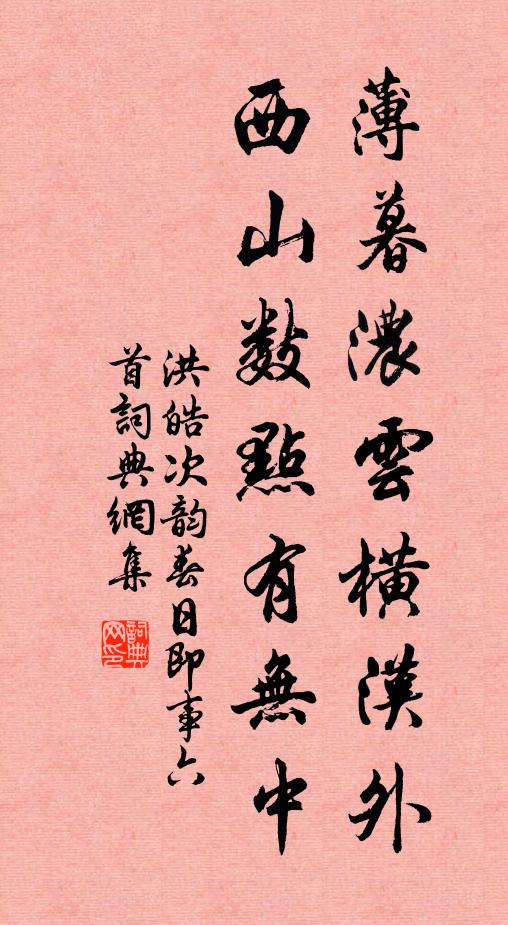 薄暮濃雲橫漢外
西山數點有無中
洪皓次韵春日即事六
首詞典網集
詞典网印